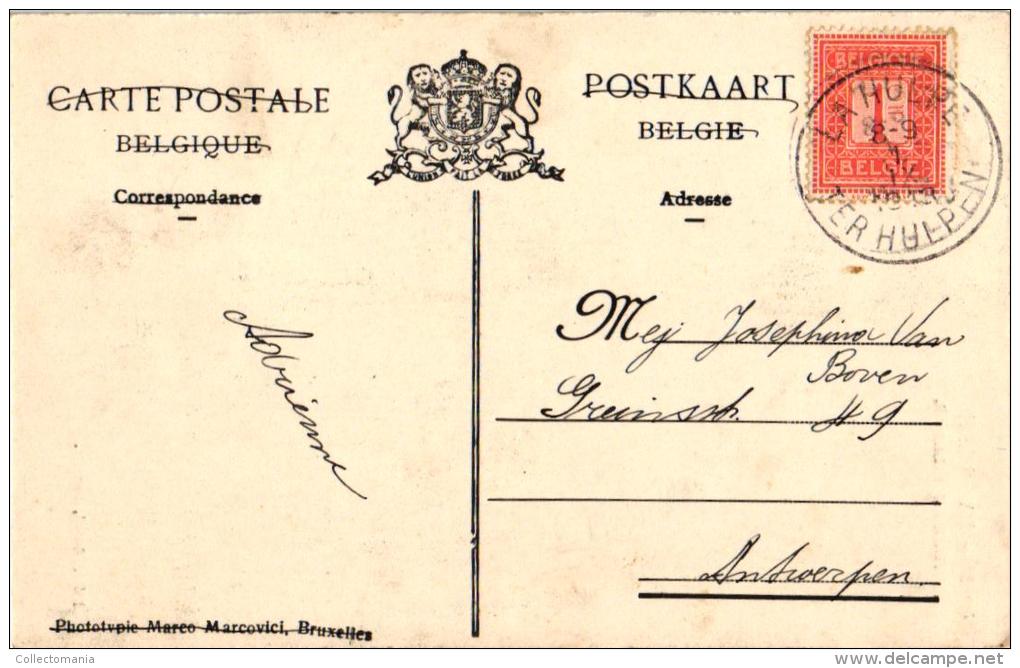 CARTE POSTALE
BELGIQUE
Correspondance
L'UNION FAIT LA FORCE
POSTKAART
BELGIE
Adresse
BELGIQUE
1
BELGIË
LA HULPE
8-9
TER HULPEN
Adrienne
Mej Josephina Van
Boven
49
Antwerpen
Phototypie Marco Marcovici, Bruxelles
Collectomania
delcampe.net